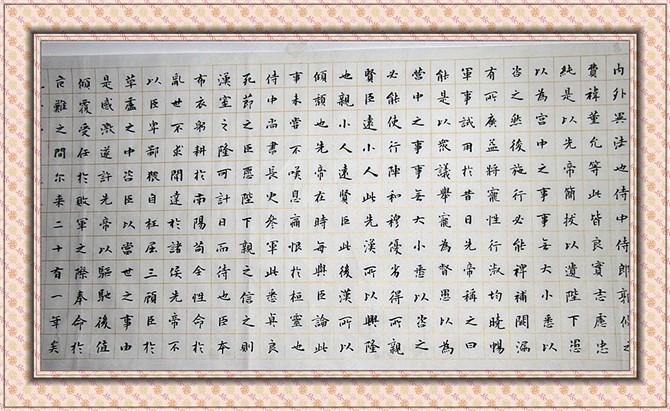 内外異法也侍中侍郎郭攸之
費禕董允等此皆良實志慮忠
純是以先帝簡拔以遺陛下愚
以為宮中之事事無大小悉以
咨之然後施行必能裨補闕漏
有所廣益將寵性行淑均曉暢
軍事試用於昔日先帝稱之曰
能是以眾議舉寵為督愚以為
營中之事事無大小悉以咨之
必能使行陣和穆優劣得所親
賢臣遠小人此先漢所以興隆
也親小人遠賢臣此後漢所以
傾頹也先帝在時每與臣論此
事未嘗不嘆息痛恨於桓靈也
侍中尚書長史參軍此悉貞良
死節之臣願陛下親之信之則
漢室之隆可計日而待也臣本
布衣躬耕於南陽苟全性命於
亂世不求聞達於諸侯先帝不
以臣卑鄙猥自枉屈三顧臣於
草廬之中咨臣以當世之事由
是感激遂許先帝以驅馳後值
傾覆受任於敗軍之際奉命於
危難之間尔来二十有一年矣